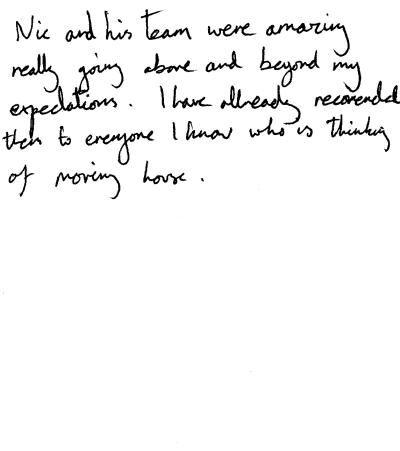 Nic and his team were amazing
really going above and beyond my
expectations. I have allready recomended
them to everyone I know who is thinking
of moving house.